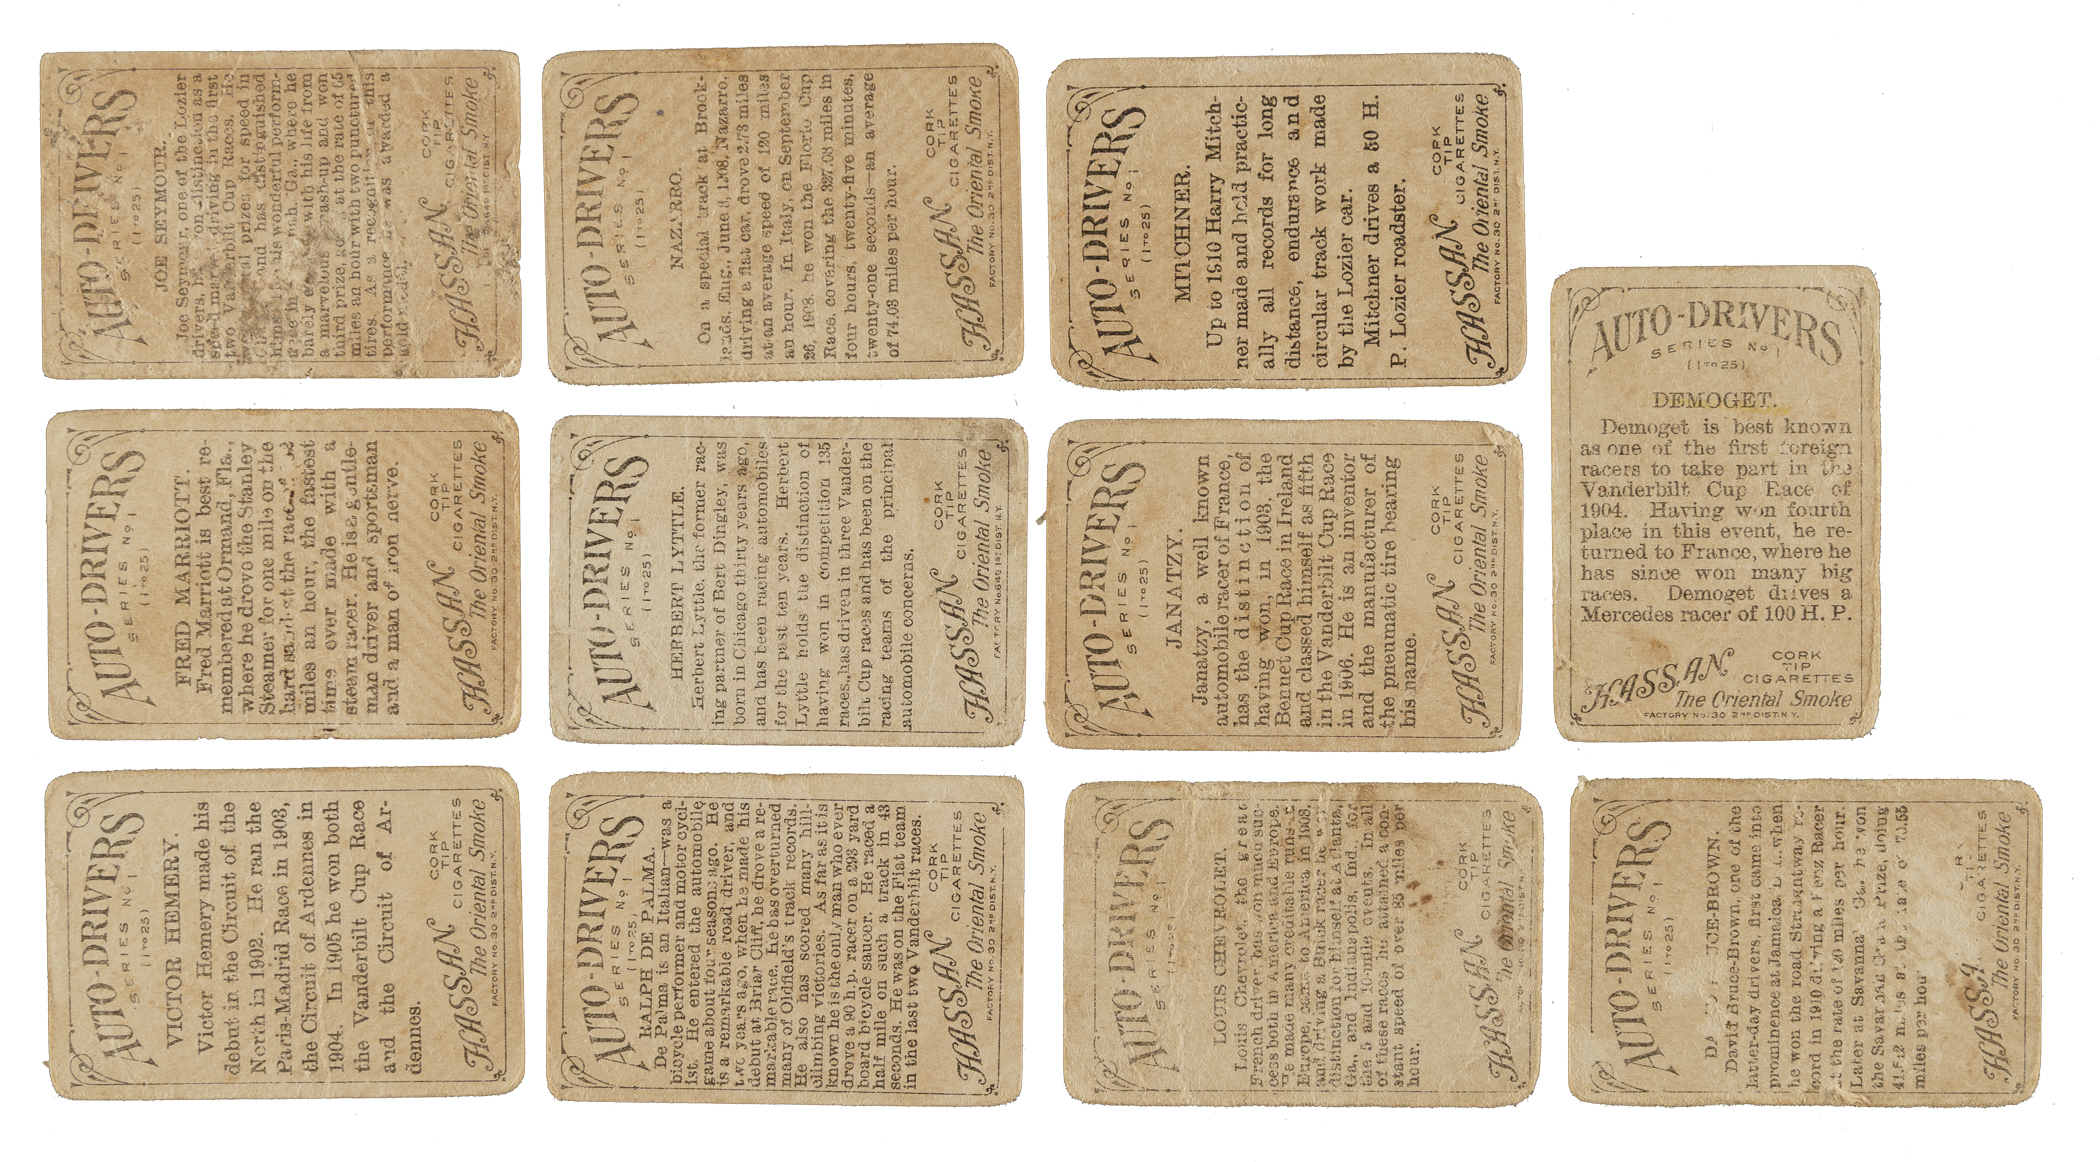 AUTO-DRIVERS
SERIES No 1
(1 TO 25)
JOE SEYMOUR.
Joe Seymour, one of the Lozier
drivers, distinction as a
driving in the first
two Vanderbilt Cup Races. He
prizes for speed in
and has distinguished
his wonderful perform-
Ga., where he
barely with his life from
a marvelous smash-up and won
third prize, at the rate of 65
miles an hour with two punctured
tires. As a recognition of this
performance he was awarded a
gold medal.
CORK
TIP
HASSAN CIGARETTES
The Oriental Smoke
No 649 1ST DIST. N.Y.
AUTO-DRIVERS
SERIES No 1
(1 TO 25)
NAZARRO.
On a special track at Brook-
lands, Eng., June 8, 1908, Nazarro,
driving a fiat car, drove 2.73 miles
at an average speed of 120 miles
an hour. In Italy, on September
26, 1908, he won the Florio Cup
Race, covering the 327.08 miles in
four hours, twenty-five minutes,
twenty-one seconds—an average
of 74.03 miles per hour.
CORK
TIP
HASSAN CIGARETTES
The Oriental Smoke
FACTORY No. 30 2ND DIST. N.Y.
AUTO-DRIVERS
SERIES No 1
(1 TO 25)
MITCHNER.
Up to 1910 Harry Mitch-
ner made and held practic-
ally all records for long
distance, endurance and
circular track work made
by the Lozier car.
Mitchner drives a 50 H.
P. Lozier roadster.
CORK
TIP
HASSAN CIGARETTES
The Oriental Smoke
FACTORY No. 30 2ND DIST. N.Y.
AUTO-DRIVERS
SERIES No 1
(1 TO 25)
DEMOGET.
Demoget is best known
as one of the first foreign
racers to take part in the
Vanderbilt Cup Race of
1904. Having won fourth
place in this event, he re-
turned to France, where he
has since won many big
races. Demoget drives a
Mercedes racer of 100 H. P.
CORK
TIP
HASSAN CIGARETTES
The Oriental Smoke
FACTORY No. 30 2ND DIST. N.Y.
AUTO-DRIVERS
SERIES No 1
(1 TO 25)
FRED MARRIOTT.
Fred Marriott is best re-
membered at Ormand, Fla.,
where he drove the Stanley
Steamer for one mile on the
hard sand at the rate
miles an hour, the fastest
time ever made with a
steem racer. He is a gentle-
man driver and sportsman
and a man of iron nerve.
CORK
TIP
HASSAN CIGARETTES
The Oriental Smoke
FACTORY No. 30 2ND DIST. N.Y.
AUTO-DRIVERS
SERIES No 1
(1 TO 25)
HERBERT LYTTLE.
Herbert Lyttle, the former rac-
ing partner of Bert Dingley, was
born in Chicago thirty years ago,
and has been racing automobiles
for the past ten years. Herbert
Lyttle holds the distinction of
having won in competition 135
races, has driven in three Vander-
bilt Cup races and has been on the
racing teams of the principal
automobile concerns.
CORK
TIP
HASSAN CIGARETTES
The Oriental Smoke
FACTORY No 649 1ST DIST. N.Y.
AUTO-DRIVERS
SERIES No 1
(1 TO 25)
JANATZY.
Janatzy, a well known
automobile racer of France,
has the distinction of
having won, in 1903, the
Bennet Cup Race in Ireland
and classed himself as fifth
in the Vanderbilt Cup Race
in 1906. He is an inventor
and the manufacturer of
the pneumatic tire bearing
his name.
CORK
TIP
HASSAN CIGARETTES
The Oriental Smoke
FACTORY No. 30 2ND DIST. N.Y.
AUTO-DRIVERS
SERIES No 1
(1 TO 25)
VICTOR HEMERY.
Victor Hemery made his
debut in the Circuit of the
North in 1902. He ran the
Paris-Madrid Race in 1903,
the Circuit of Ardennes in
1904. In 1905 he won both
the Vanderbilt Cup Race
and the Circuit of Ar-
dennes.
CORK
TIP
HASSAN CIGARETTES
The Oriental Smoke
FACTORY No. 30 2ND DIST. N.Y.
AUTO-DRIVERS
SERIES No 1
(1 TO 25)
RALPH DE PALMA.
De Palma is an Italian—was a
bicycle performer and motor cycl-
ist. He entered the automobile
game about four seasons ago. He
is a remarkable road driver, and
two years ago, when he made his
debut at Briar Cliff, he drove a re-
markable race. He has overturned
many of Oldfield's track records.
He also has scored many hill-
climbing victories. As far as it is
known he is the only man who ever
drove a 90 h.p. racer on a 293 yard
board bicycle saucer. He raced a
half mile on such a track in 43
seconds. He was on the Fiat team
in the last two Vanderbilt races.
CORK
TIP
HASSAN CIGARETTES
The Oriental Smoke
FACTORY No. 30 2ND DIST. N.Y.
AUTO-DRIVERS
SERIES No 1
(1 TO 25)
LOUIS CHEVROLET.
Louis Chevrolet, the great
French driver has won much suc-
cess both in America and Europe.
He made many creditable runs in
Europe, came to America in 1908,
and driving a Buick racer he won
distinction for himself at Atlanta,
Ga., and Indianapolis, Ind., for
the 5 and 10-mile events. In all
of these races he attained a con-
stant speed of over 85 miles per
hour.
CORK
TIP
HASSAN CIGARETTES
The Oriental Smoke
AUTO-DRIVERS
SERIES No 1
(1 TO 25)
BRUCE-BROWN.
David Bruce-Brown, one of the
latter-day drivers, first came into
prominence at Jamaica, L. I., when
he won the road Straightway re-
cord in 1910 driving a Benz Racer
at the rate of miles per hour.
Later at Savannah, Ga., he won
the Savannah Grand Prize, doing
miles at the rate of 70.55
miles per hour
HASSAN CIGARETTES
The Oriental Smoke
FACTORY No. 30 2ND DIST. N.Y.